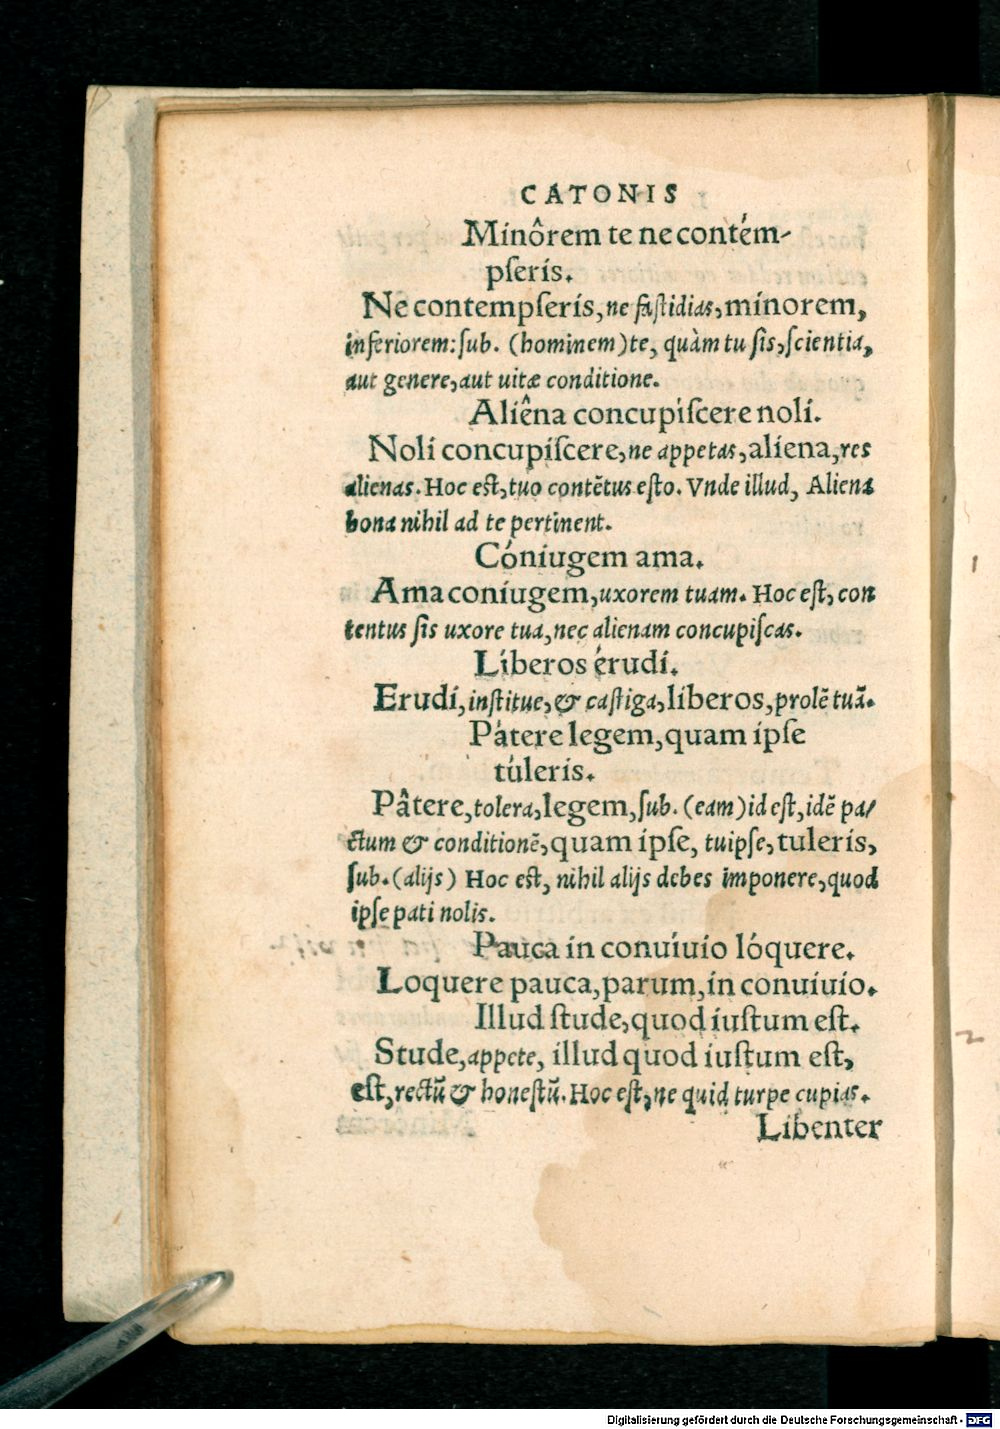 CATONIS
Minôrem te ne contém-
pſeris.
Ne contempſeris, ne faſtidias, minorem,
inferiorem: ſub. (hominem) te, quàm tu ſis, ſcientia,
aut genere, aut uitæ conditione.
Aliêna concupíſcere noli.
Noli concupiſcere, ne appetas, aliena, res
alienas. Hoc eſt, tuo contētus eſto. Vnde illud, Aliena
bona nihil ad te pertinent.
Cóniugem ama.
Ama coniugem, uxorem tuam. Hoc eſt, con
tentus ſis uxore tua, nec alienam concupiſcas.
Líberos érudi.
Erudi, inſtitue, & caſtiga, liberos, prolē tuā.
Pátere legem, quam ipſe
túleris.
Pâtere, tolera, legem, ſub. (eam) id eſt, idē pa/
ctum & conditionē, quam ipſe, tuipſe, tuleris,
ſub. (alijs) Hoc eſt, nihil alijs debes imponere, quod
ipſe pati nolis.
Pauca in conuiuio lóquere.
Loquere pauca, parum, in conuiuio.
Illud ſtude, quod iuſtum eſt.
Stude, appete, illud quod iuſtum eſt,
eſt, rectū & honeſtū. Hoc eſt, ne quid turpe cupias.
Libenter
Digitalisierung gefördert durch die Deutsche Forschungsgemeinschaft - DFG